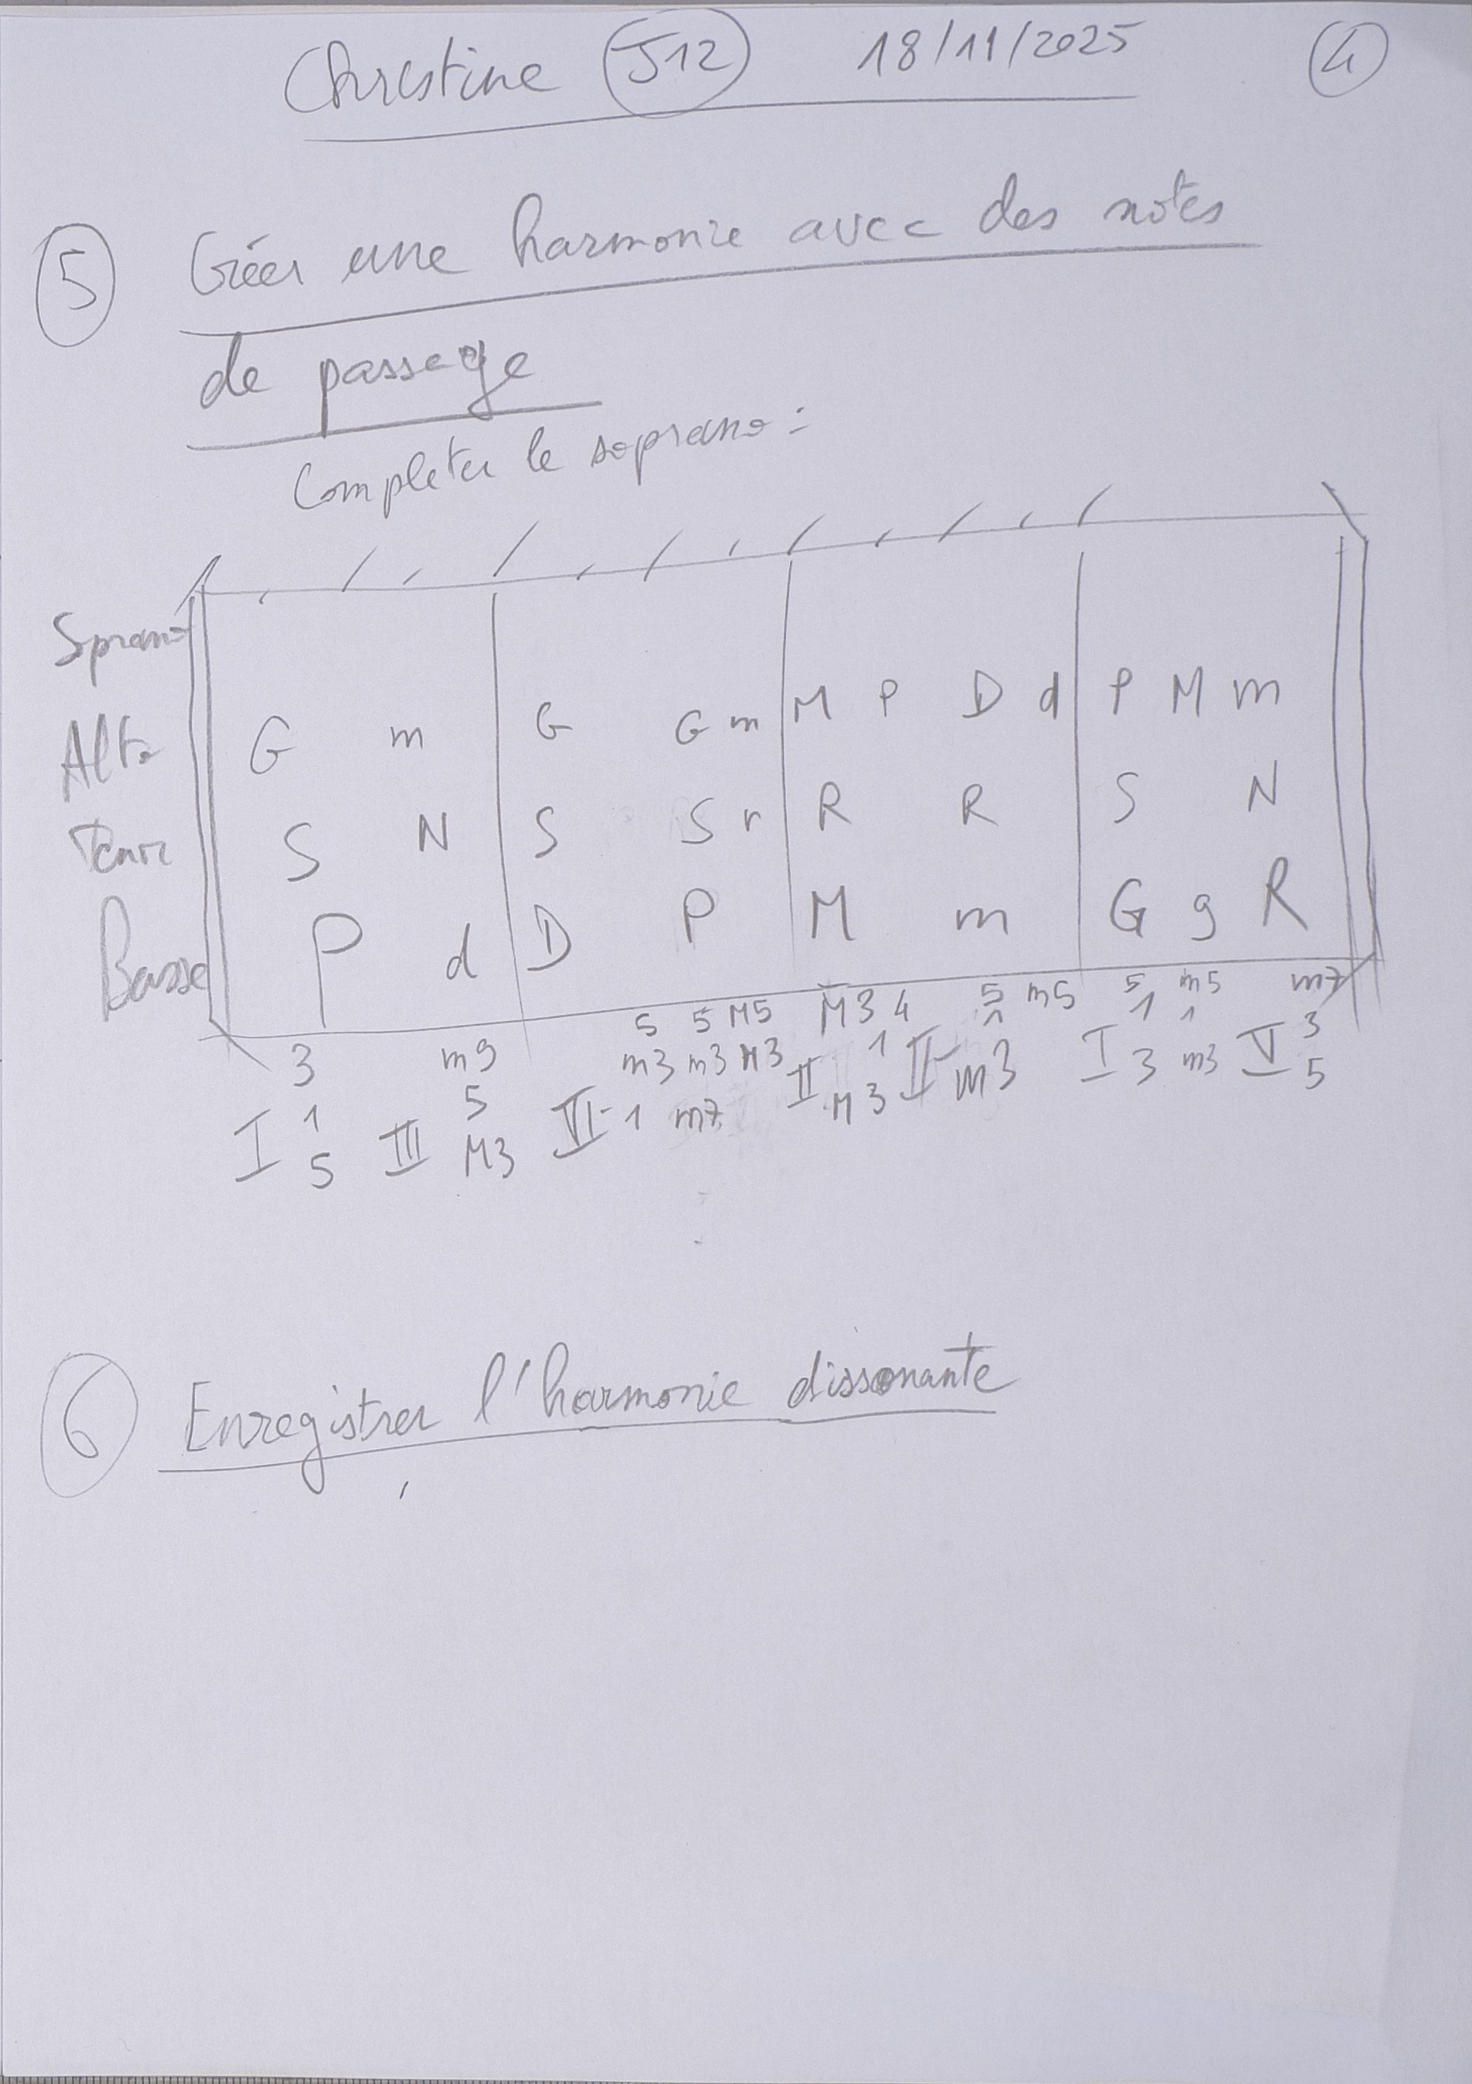 Christine J12 18/11/2025 4
5 Créer une harmonie avec des notes
de passage
Completer le soprano :
Soprano
Alto G m G G m M P D d P M m
Tenor S N S S r R R S N
Basse P d D P M m G g R
3 m9 5 5 M5 M3 4 5 m5 5 m5 m7
1 5 m3 m3 M3 1 1 1 1 3
I 5 III M3 VI- 1 m7 II M3 II- m3 I 3 m3 V 5
6 Enregistrer l'harmonie dissonante